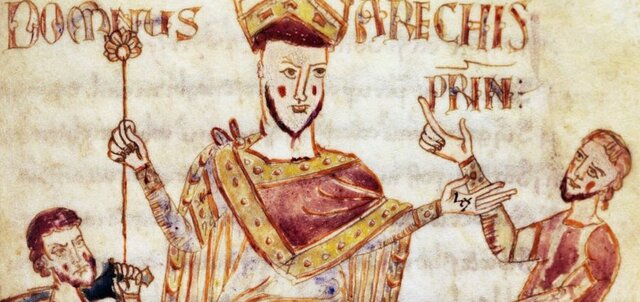 DOMNUS ARECHIS
PRIN: